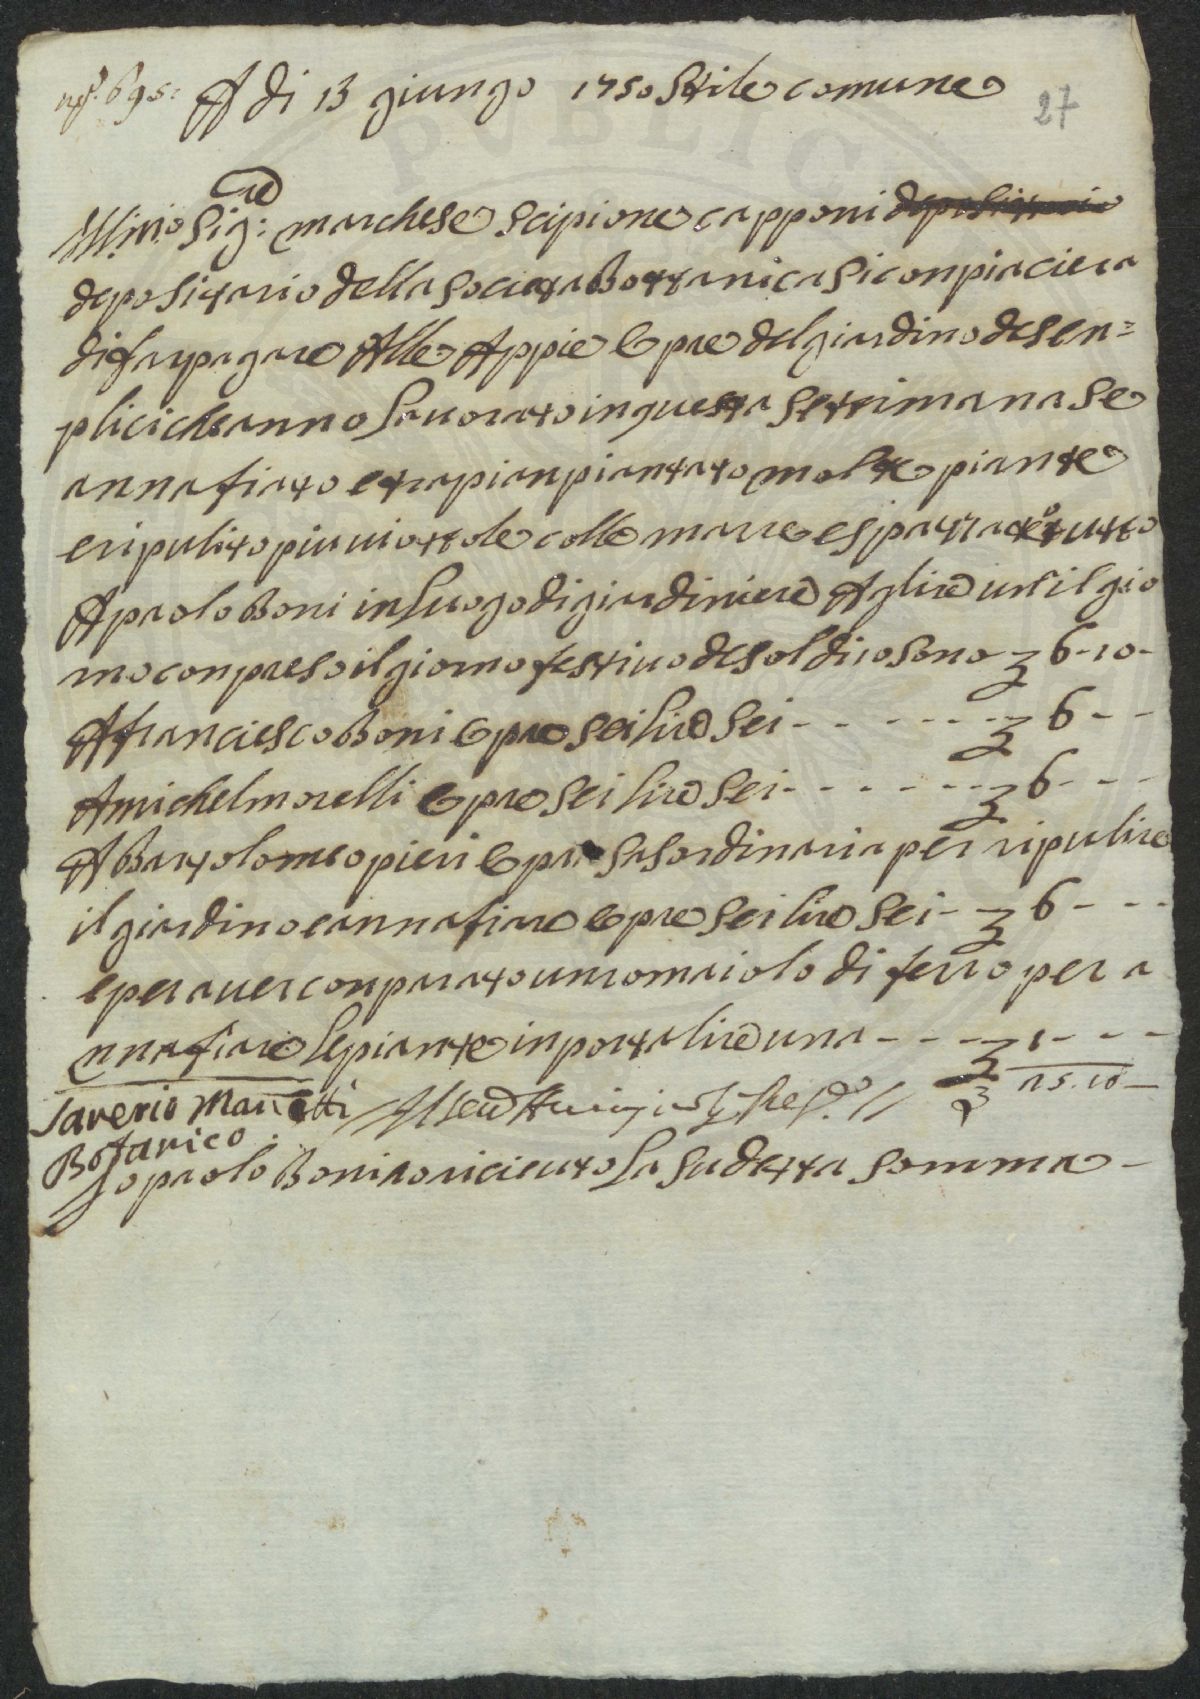 nº. 695: A di 13 giungo 1750 Stile comune
27
Illmo Sig:re marchese Scipione capponi depositario
depositario della Societa Bottanica Si conpiaciera
di far pagare Alle Appie Opre del giardino de Sen=
plici che anno Lauorato in questa Settimana Se
annafiato e trapianpiantato molte piante
e ripulito piu uiottole colle marre e spazzato tutto
A paolo Boni in Luogo di giardiniere A lire una il gio
rno conpreso il giorno festiuo de soldi 10 sono 6-10-
A franciesco Boni Opre Sei lire Sei - - - - - - - 6 - -
A michel morelli Opre Sei lire Sei - - - - - - - 6 - - -
A Bartolomeo pieri Opra Sasordinaria per ripulire
il giardino e annafiare Opre Sei lire Sei - - 6 - - -
e per auer conparato un romaiolo di ferro per a
nnafiare Le piante inporta lire una - - - - 1 - - - -
15.10 —
Saverio Manetti
Botanico
Io paolo Boni o riceuto La Sudetta Somma -